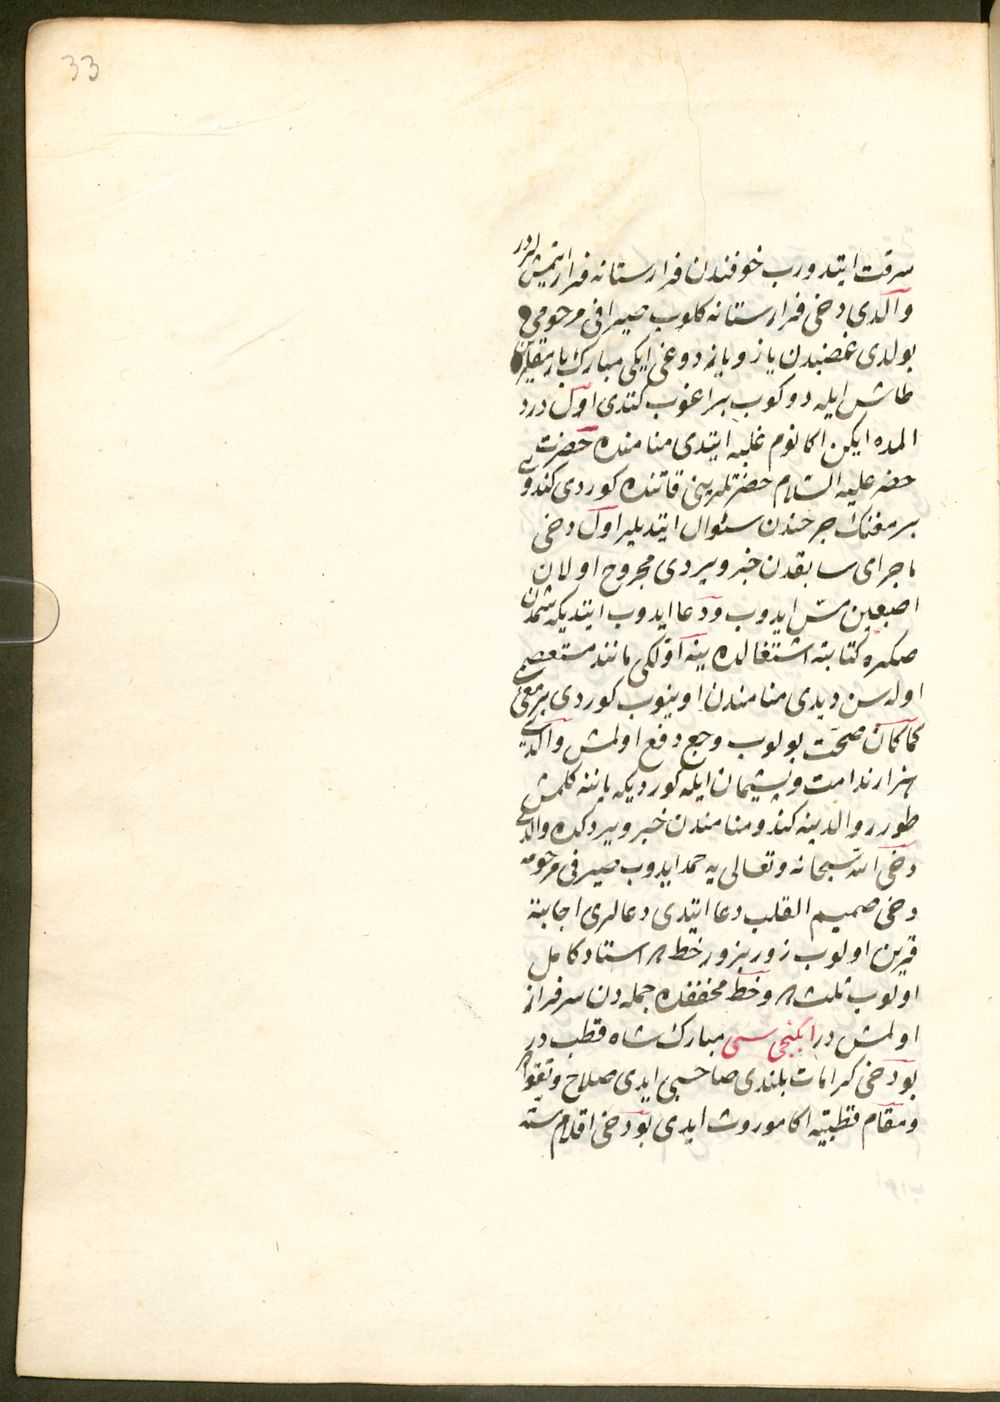 33
سرقت ایتدورب خوفندن قرارستانه فرار ایتمشلردر
والدی دخی قرارستانه کلوب صیرافی مرحومی
بولدی غضبندن یازو یازدوغی ایکی مبارک پارمقلرین
طاش ایله دوکوب براغوب کتدی اول درد
المده ایکن اکا نوم غلبه ایتدی منامنده حضرت
حضر علیه السلام حضرتلرینی قاتنده کوردی کندویی
برمغنک جرحندن سئوال ایتدیلر اول دخی
ماجرای سابقدن خبر ویردی مجروح اولان
اصبعین مسّ ایدوب و دعا ایدوب ایتدیکه شمدن
صکره کتابته اشتغالده ینه اولکی مانند مستعصمی
اوله سن دیدی منامندن اوینوب کوردی برمغی
کماکان صحّت بولوب وجع دفع اولمش والدی
هزار ندامت و پشیمان ایله کوردیکه یاننه کلمش
طورر والدینه کندو منامندن خبر ویردکده والدی
دخی الله سبحانه وتعالی یه حمد ایدوب صیرفی مرحومه
دخی صمیم القلب دعا ایتدی دعالری اجابته
قرین اولوب زور بزور خطده استاد کامل
اولوب ثلثده و خط محققده جمله دن سرفراز
اولمش در ایکنجی سی مبارک شاه قطب در
بو دخی کرامات بلندی صاحبی ایدی صلاح وتقواده
و مقام قطبیته اکا موروث ایدی بو دخی اقلام سته